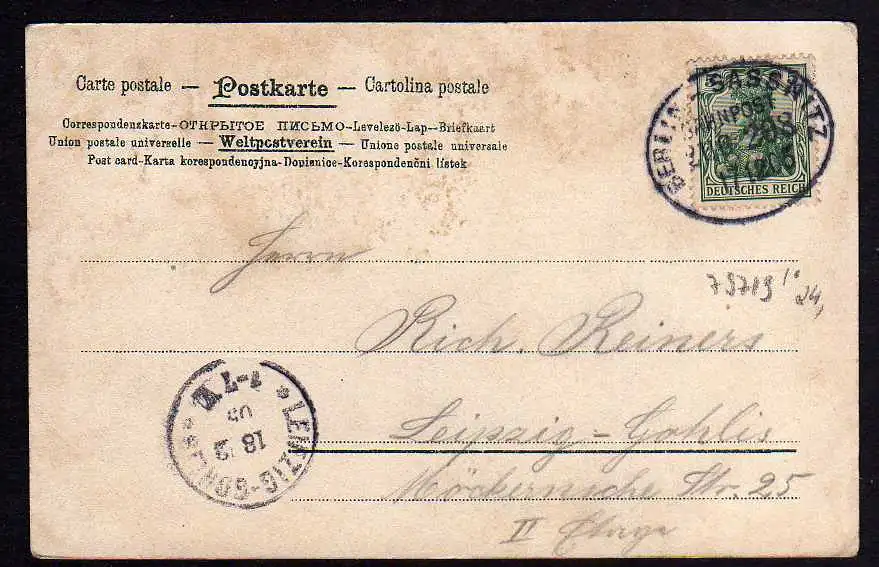 Carte postale — Postkarte — Cartolina postale
Correspondenzkarte-ОТКРЫТОЕ ПИСЬМО-Levelező-Lap--Briefkaart
Union postale universelle — Weltpostverein — Unione postale universale
Post card-Karta korespondencyjna-Dopisnice-Korespondenčni listek
BERLIN - SASSNITZ
BAHNPOST
DEUTSCHES REICH
Herrn
79719
Rich. Reiners
Leipzig-Gohlis
Möckernsche Str. 25
II Etage
* LEIPZIG-GOHLIS *
18 12
05